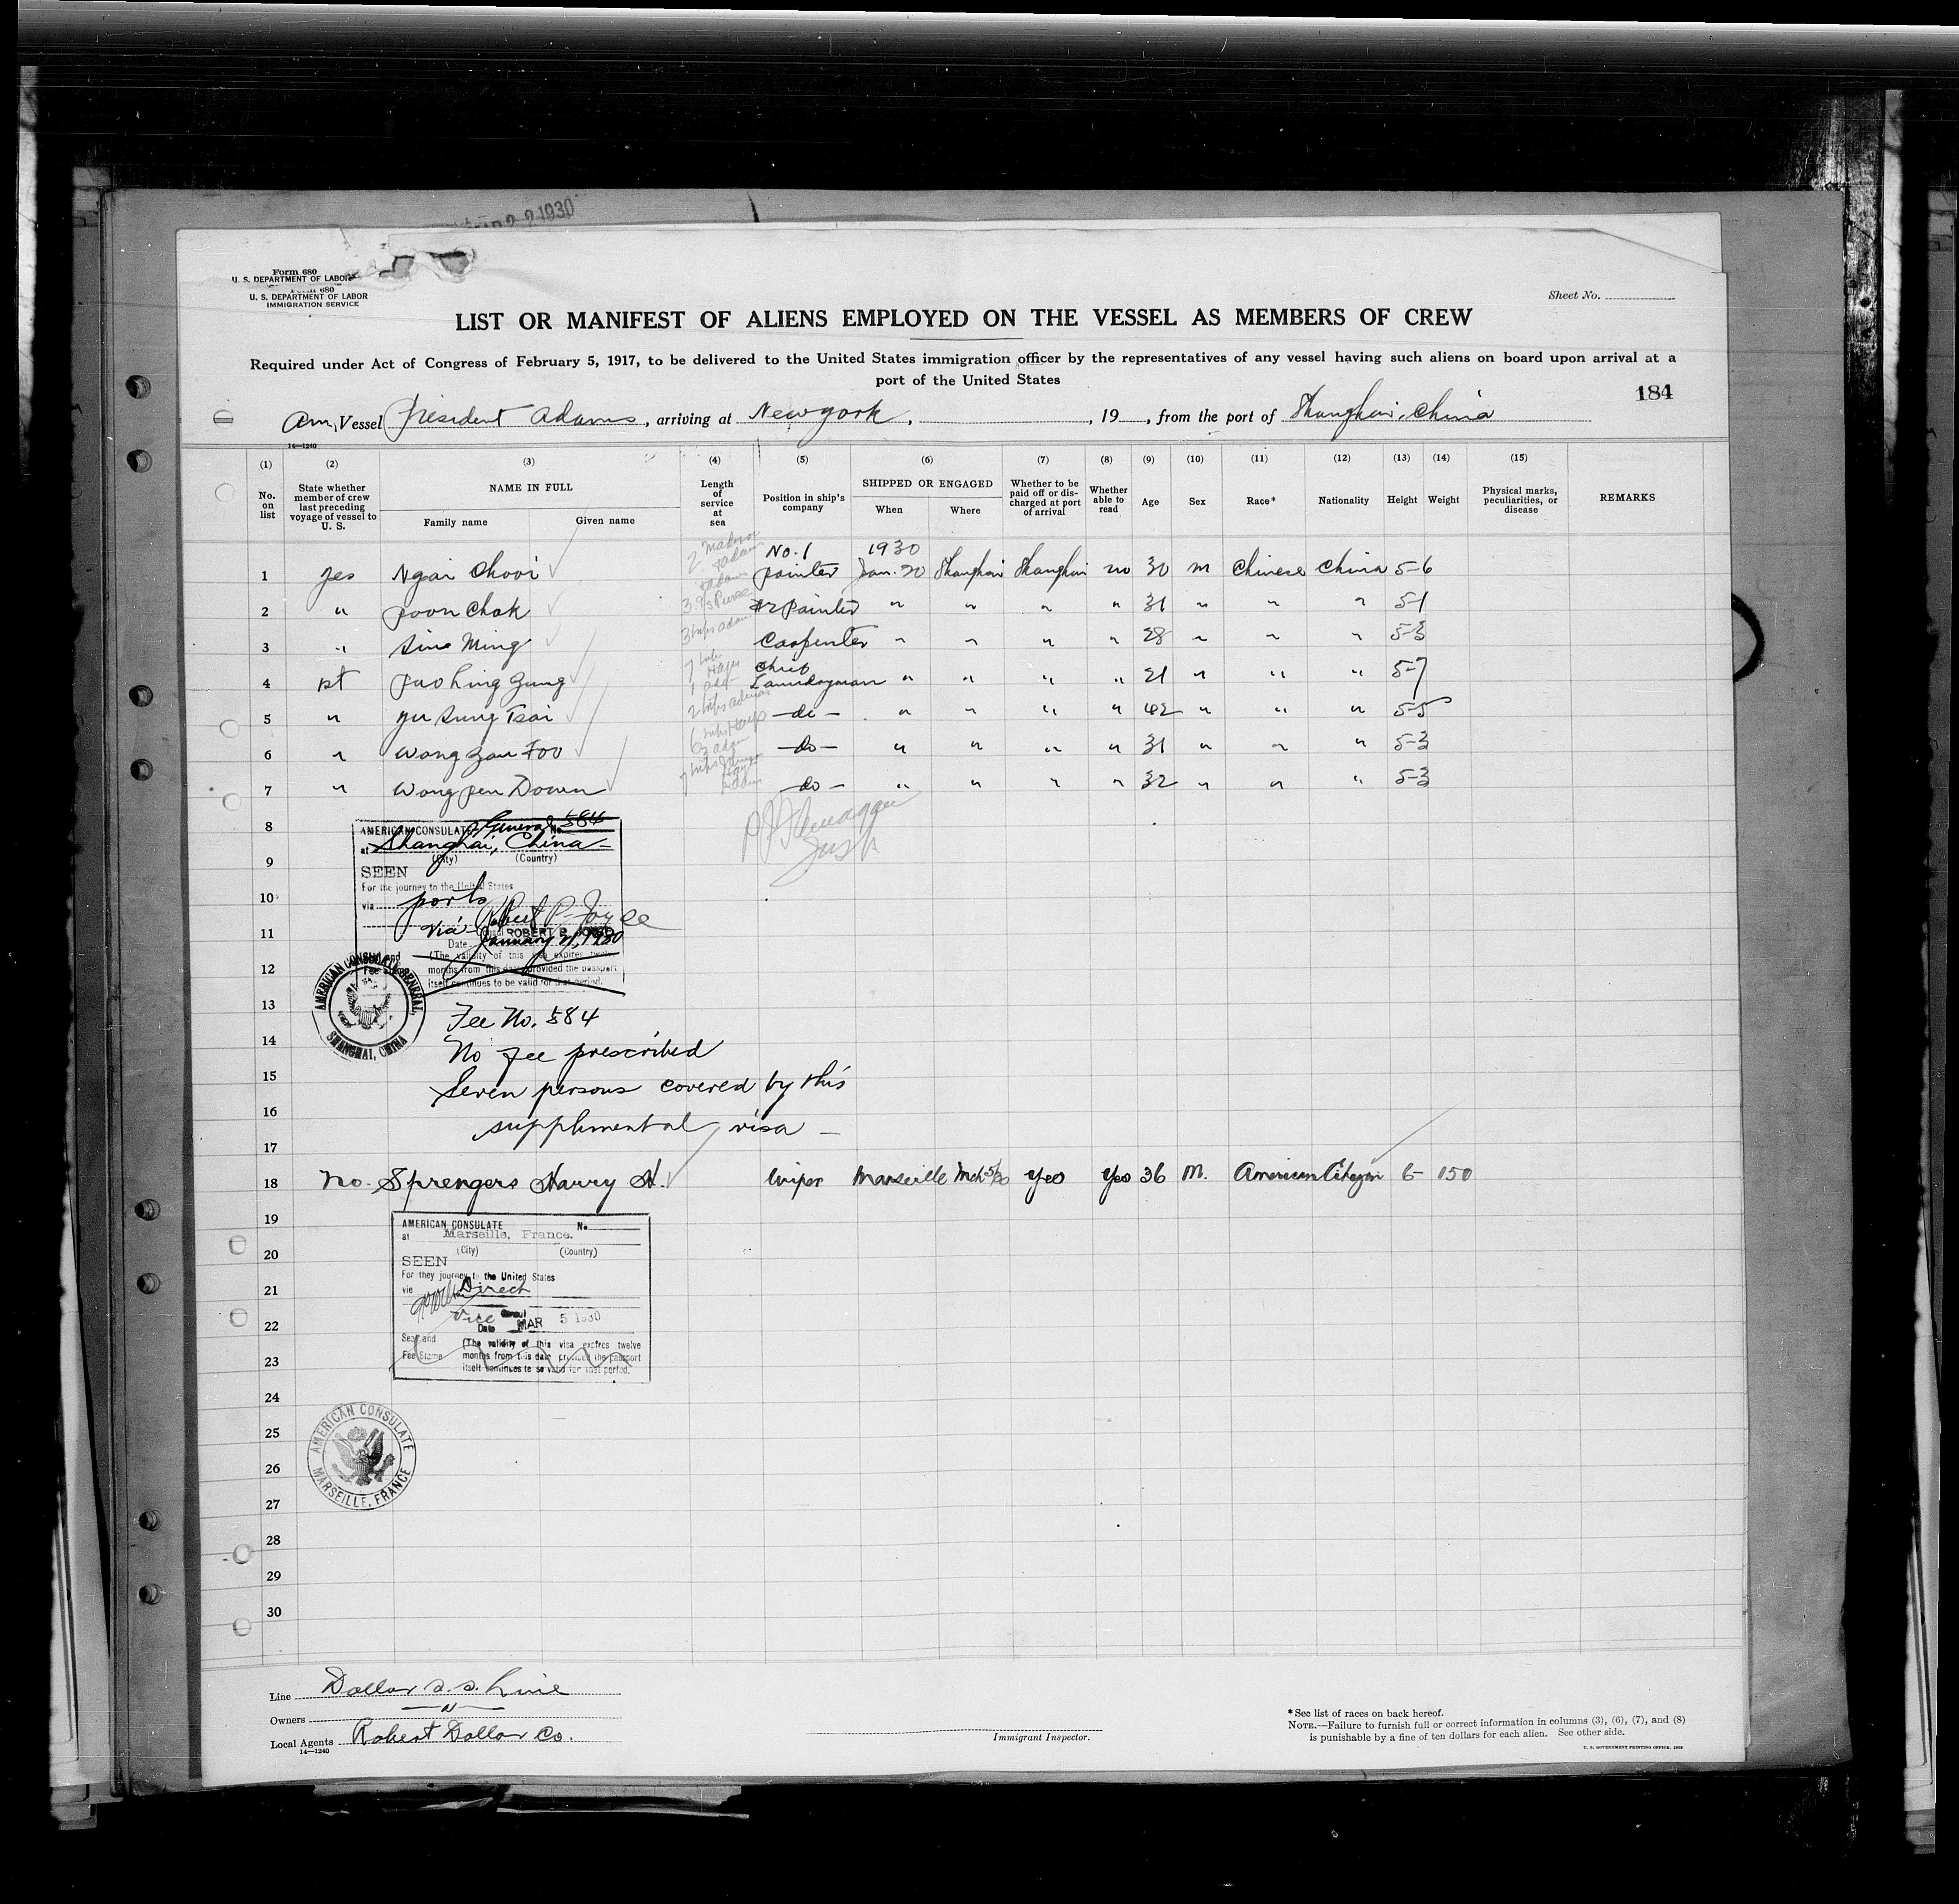 Form 680
U. S. DEPARTMENT OF LABOR
680
U. S. DEPARTMENT OF LABOR
IMMIGRATION SERVICE
2 2 1930
Sheet No.
LIST OR MANIFEST OF ALIENS EMPLOYED ON THE VESSEL AS MEMBERS OF CREW
Required under Act of Congress of February 5, 1917, to be delivered to the United States immigration officer by the representatives of any vessel having such aliens on board upon arrival at a
port of the United States
184
Am. Vessel President Adams, arriving at New york, , 19 , from the port of Shanghai, China
14—1240
(1) (2) (3) (4) (5) (6) (7) (8) (9) (10) (11) (12) (13) (14) (15)
No. on list
State whether member of crew last preceding voyage of vessel to U. S.
NAME IN FULL
Family name Given name
Length of service at sea
Position in ship's company
SHIPPED OR ENGAGED
When Where
Whether to be paid off or discharged at port of arrival
Whether able to read
Age
Sex
Race*
Nationality
Height
Weight
Physical marks, peculiarities, or disease
REMARKS
No. 1 1930
1 yes Ngai Chooi painter Jan. 20 Shanghai Shanghai no 30 m Chinese China 5-6
2 " Poon Chak #2 painter " " " " 31 " " " 5-1
3 " Sing Ming Carpenter " " " " 28 " " " 5-3
4 1st Hing Zung Chief Laundryman " " " " 21 " " " 5-7
5 " Yu Sung Tsai —do— " " " " 42 " " " 5-5
6 " Wong Zau Foo —do— " " " " 31 " " " 5-3
7 " Wong Pen Down —do— " " " " 32 " " " 5-3
8
AMERICAN CONSULATE General No. 584
at Shanghai, China
(City) (Country)
9
SEEN
For the journey to the United States
10
via ports
11
Robert P. Joyce
ROBERT P. JOYCE
Date January 21, 1930
12
(The validity of this visa expires twelve
months from this date provided the passport
itself continues to be valid for that period.
AMERICAN CONSULATE GENERAL, SHANGHAI, CHINA
13
Fee No. 584
14
No fee prescribed
15
Seven persons covered by this
16
supplemental visa —
17
18 No. Sprengers Harry H. Wiper Marseille Mch 5/30 Yes Yes 36 M. American Citizen 6- 150
19
AMERICAN CONSULATE No.
at Marseille, France.
20
(City) (Country)
SEEN
For they journey to the United States
21
vie Direct
22
Vice Consul
Date MAR 5 1930
Seal and
Fee Stamp
23
(The validity of this visa expires twelve
months from this date provided the passport
itself continues to be valid for that period.
24
25
AMERICAN CONSULATE MARSEILLE, FRANCE
26
27
28
29
30
Line Dollar S. S. Line
Owners — " —
Local Agents Robert Dollar Co.
14—1240
Immigrant Inspector.
* See list of races on back hereof.
NOTE.—Failure to furnish full or correct information in columns (3), (6), (7), and (8)
is punishable by a fine of ten dollars for each alien. See other side.